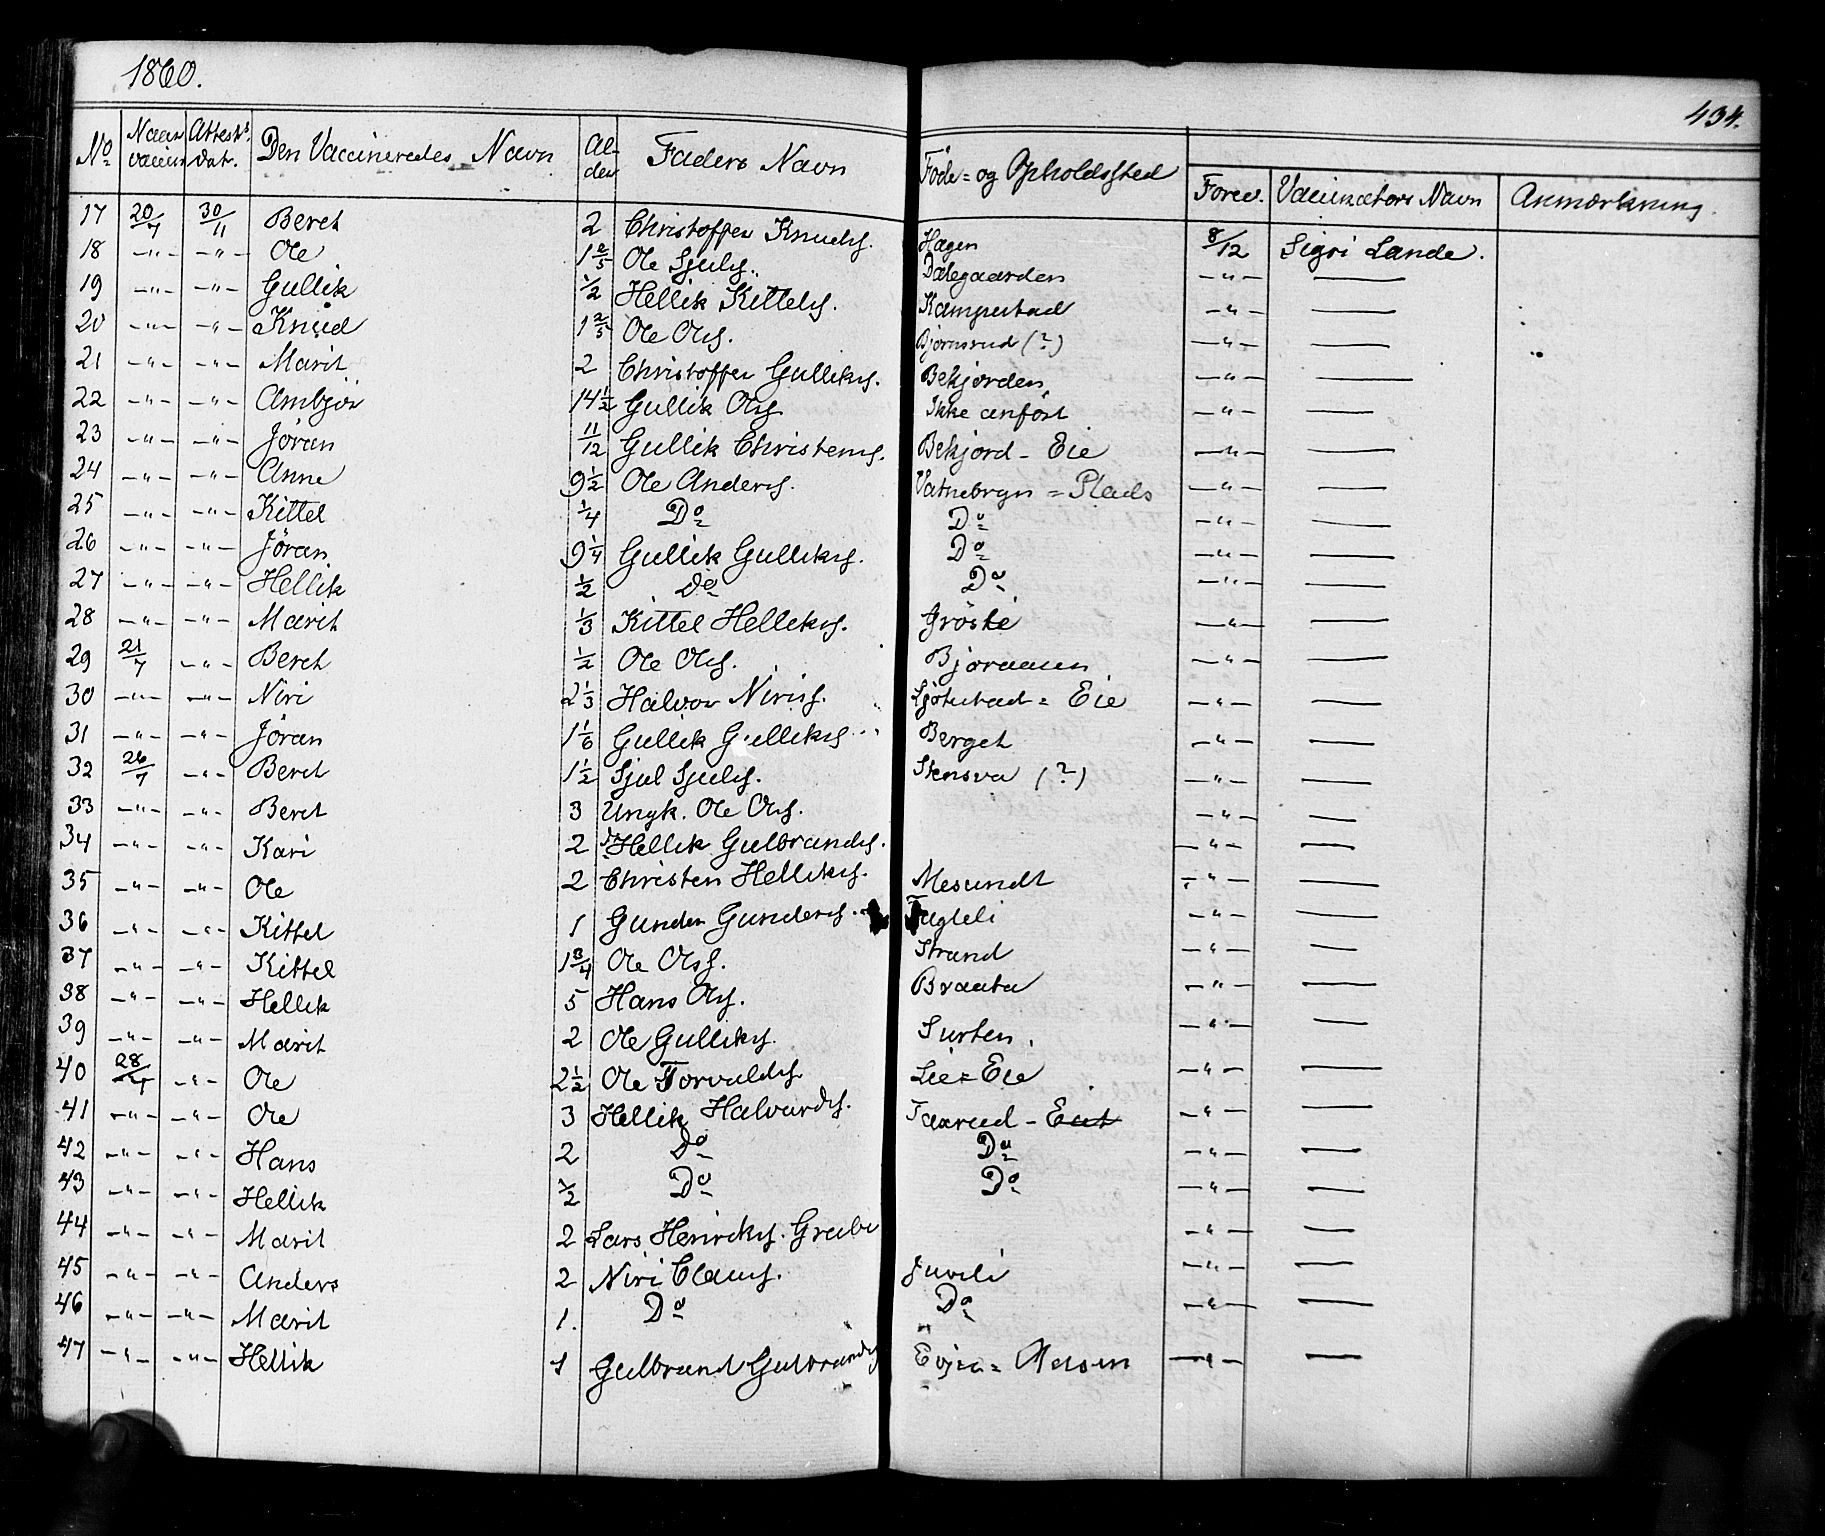 1860.
434.
No Naar vaccin Attests dat. Den Vaccineredes Navn Al- der Faders Navn Føde= og Opholdssted Forev. Vaccinators Navn Anmærkning.
17 20/7 30/11 Beret 2 Christoffer Knuds. Hagen 8/12 Sigri Lande.
18 -"- -"- Ole 1 2/5 Ole Sjuls. Dalegaarden -"- —
19 -"- -"- Gullik 1/2 Hellik Kittels. Kampestad -"- —
20 -"- -"- Knud 1 2/5 Ole Ols. Bjørnsrud (?) -"- —
21 -"- -"- Marit 2 Christoffer Gulliks. Bekjorden -"- —
22 -"- -"- Ambjør 14 1/2 Gullik Ols. Ikke anført -"- —
23 -"- -"- Jøran 11/12 Gullik Christens. Bekjord - Eie -"- —
24 -"- -"- Anne 9 1/2 Ole Anders. Vatnebryn = Plads -"- —
25 -"- -"- Kittel 1/4 Do Do -"- —
26 -"- -"- Jøran 9 1/4 Gullik Gulliks. Do -"- —
27 -"- -"- Hellik 1/2 Do Do -"- —
28 -"- -"- Marit 1/3 Kittel Helliks. Grøste -"- —
29 21/7 -"- Beret 1/2 Ole Ols. Bjøraasen -"- —
30 -"- -"- Niri 2 1/3 Halvor Niris. = Eie -"- —
31 -"- -"- Jøran 1 1/6 Gullik Gulliks. Berget -"- —
32 26/7 -"- Beret 1 1/2 Sjul Sjuls. Stensva (?) -"- —
33 -"- -"- Beret 3 Ungk. Ole Ols. -"- —
34 -"- -"- Kari 2 Hellik Gulbrands. -"- —
35 -"- -"- Ole 2 Christen Helliks. Mesundt -"- —
36 -"- -"- Kittel 1 Gunder Gunders. Fugleli -"- —
37 -"- -"- Kittel 1 3/4 Ole Ols. Strand -"- —
38 -"- -"- Hellik 5 Hans Ols. Braata -"- —
39 -"- -"- Marit 2 Ole Gulliks. Surten. -"- —
40 28/7 -"- Ole 2 1/2 Ole Torvalds. Lie = Eie -"- —
41 -"- -"- Ole 3 Hellik Halvards. Taarud - -"- —
42 -"- -"- Hans 2 Do Do -"- —
43 -"- -"- Hellik 1/2 Do Do -"- —
44 -"- -"- Marit 2 Lars Henriks. -"- —
45 -"- -"- Anders 2 Niri Claus. Juveli -"- —
46 -"- -"- Marit 1. Do Do -"- —
47 -"- -"- Hellik 1 Gulbrand Gulbrands. -"- —